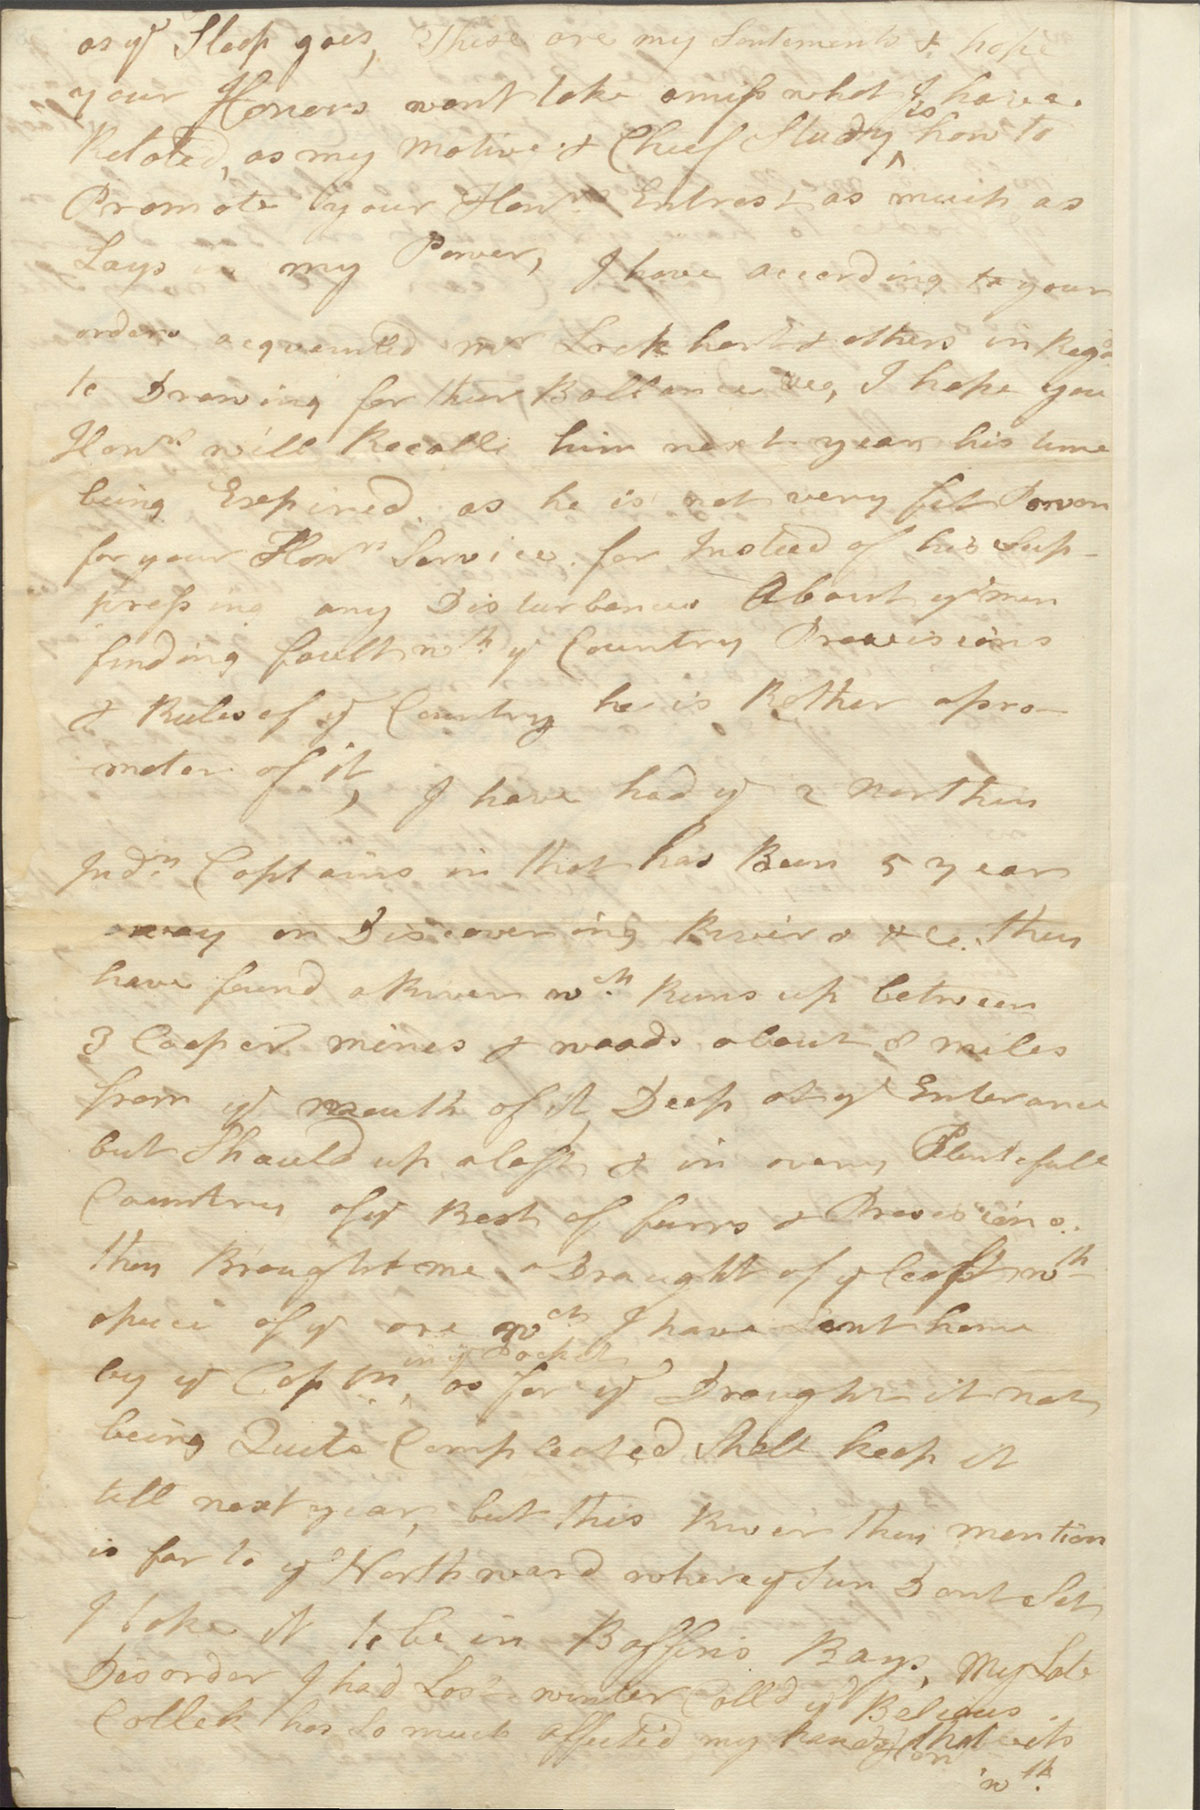 as ye Sloop goes, These are my Sentements & hope
your Honors wont take amiss what I have
Related, as my motive & Chief Study is how to
Promote your Honrs Entrest as much as
Lays in my Power, I have according to your
orders acquented mr Lockhart & others in Regd
to Drawing for their Ballance &c, I hope you
Honrs will Recall him next year his time
being Expired as he is not very fit Parson
for your Honrs Service for Insted of his Sup-
pressing any Disturbances About ye men
finding fault wth ye Country Provisions
& Rules of ye Country he is Rather a pro-
moter of it, I have had ye 2 northen
Indn Captains in that has Been 5 years
away on Discovering Rivers &c. they
have found a River wch Runs up between
3 Cooper mines & woods about 8 miles
from ye mouth of it, Deep at ye Enterance
but Should up aloft & in a very Plentefull
Country of ye Best of furrs & Provisions.
they Brought me a Draught of ye Coast wth
a peice of ye ore wch I have Sent home
by ye Captn in ye Packet, as for ye Draught it not
being Quite Compleated Shall keep it
till next year, but this River they mention
is far to ye Northward where ye Sun Dont Set
I take it to be in Baffins Bays, My Late
Disorder I had Last winter Call'd ye Belious
Collek has So much affected my hands, that its
on
wth